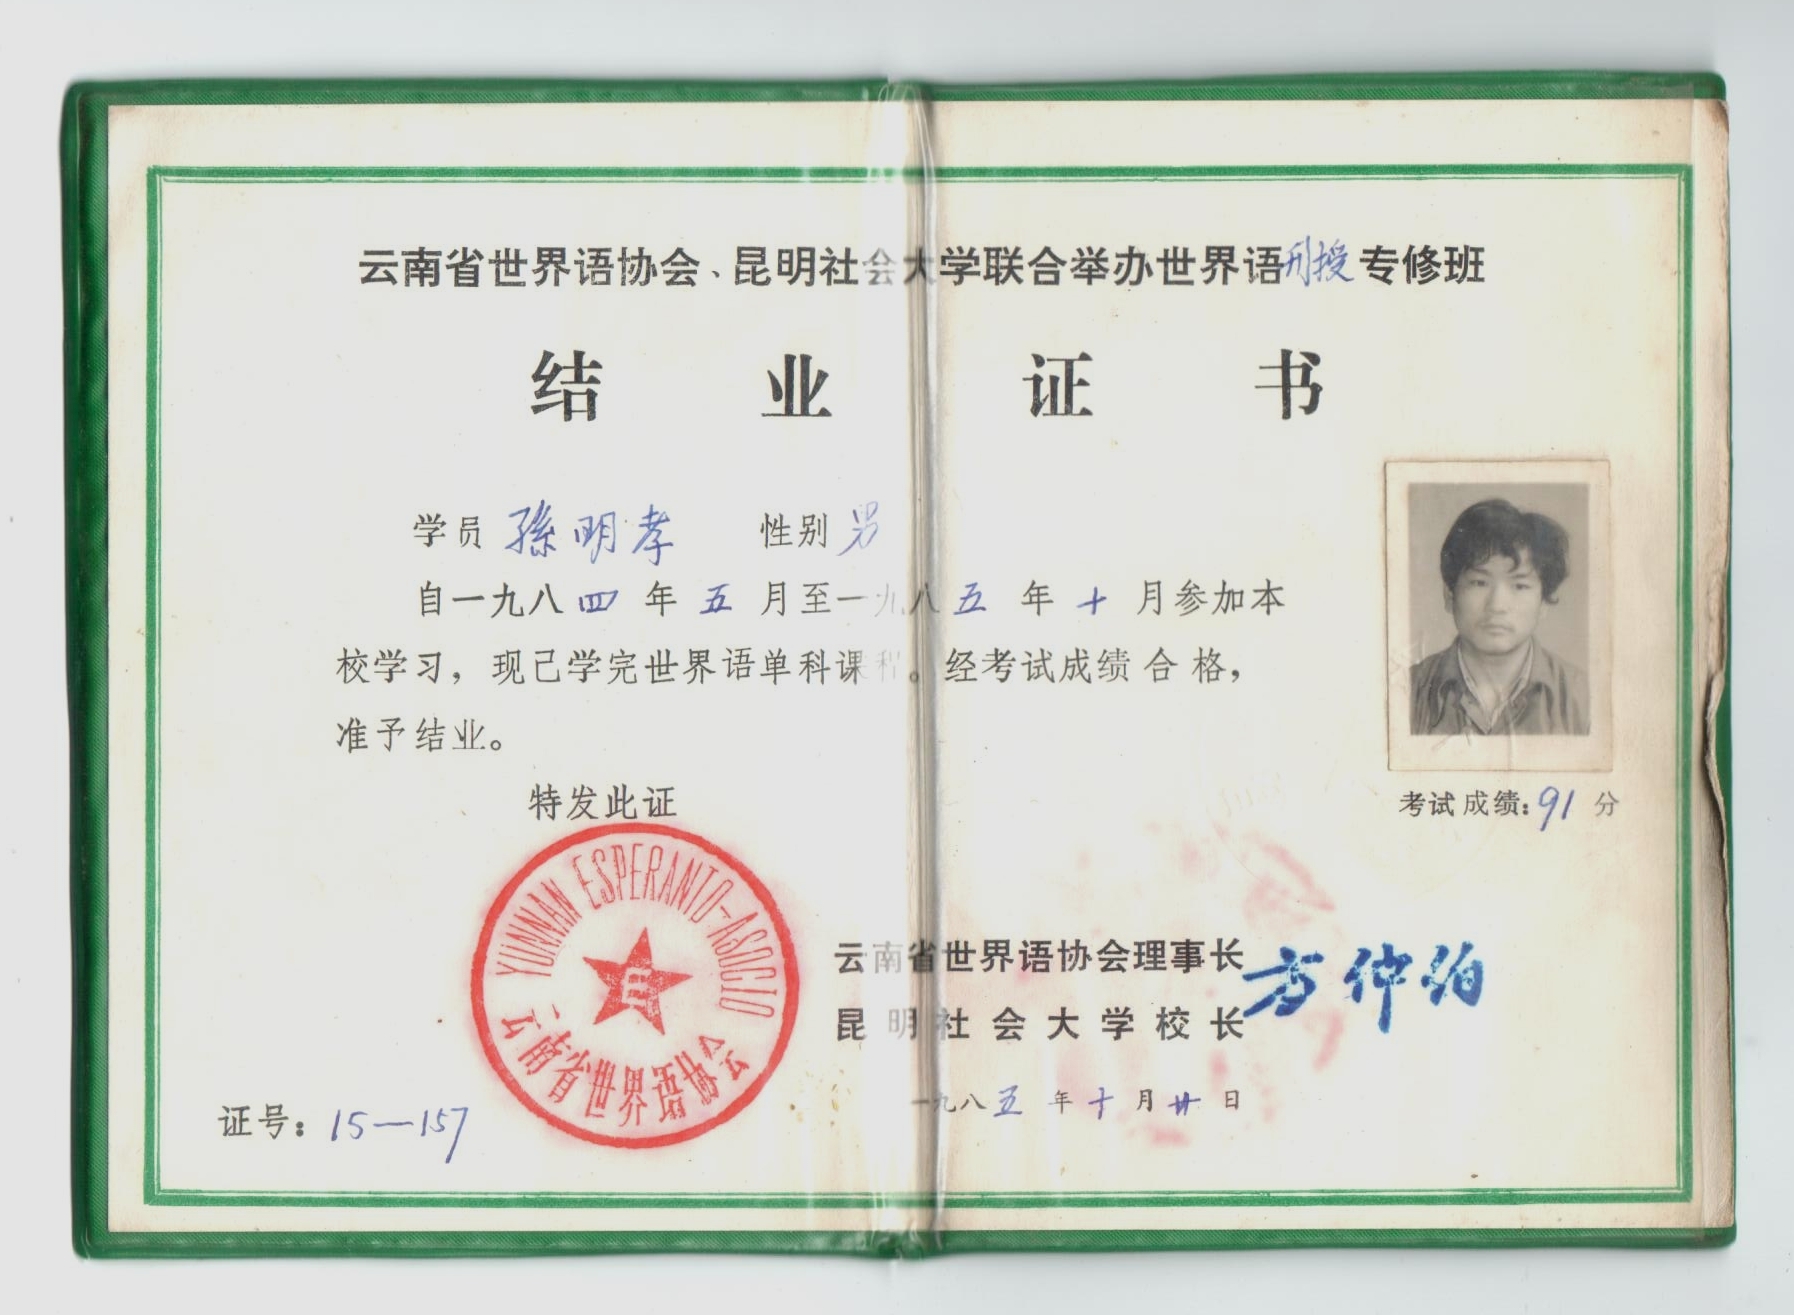 云南省世界语协会、昆明社会大学联合举办世界语刊授专修班
结业证书
学员 孫明孝 性别 男
自一九八四年五月至一九八五年十月参加本
校学习，现已学完世界语单科课程。经考试成绩合格，
准予结业。
特发此证
考试成绩：91 分
YUNNAN ESPERANTO-ASOCIO
云南省世界语协会
云南省世界语协会理事长
昆明社会大学校长
方仲伯
一九八五年十月廿日
证号：15—157